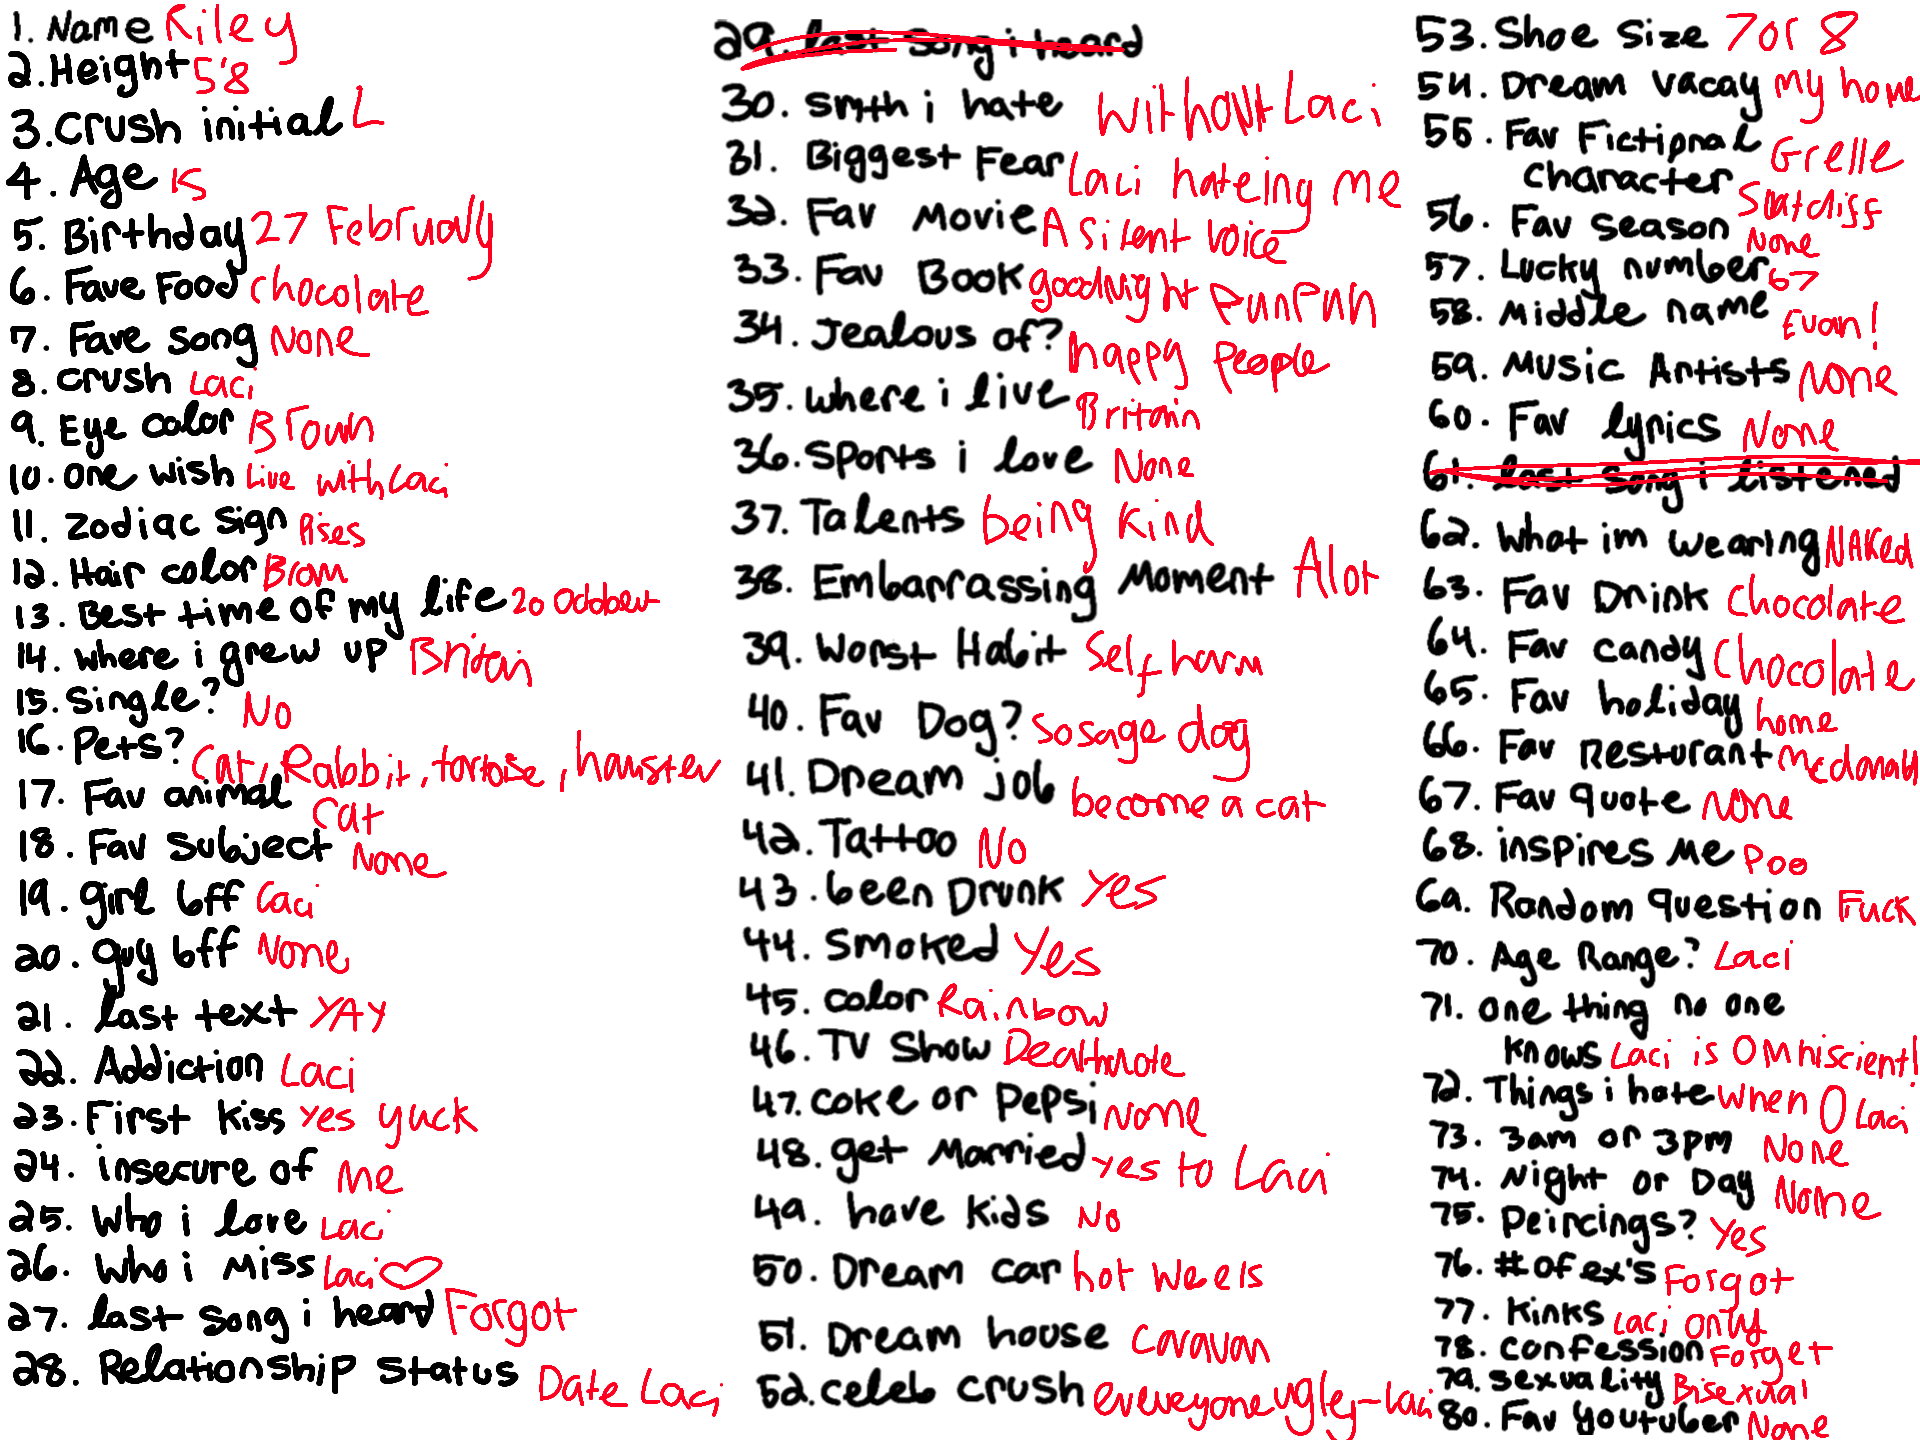 1. Name Riley
2. Height 5'8
3. crush initial L
4. Age 15
5. Birthday 27 February
6. Fave Food chocolate
7. Fave song None
8. crush Laci
9. Eye color Brown
10. one wish Live with Laci
11. zodiac sign Pises
12. Hair color Brown
13. Best time of my life 20 October
14. where i grew up Britain
15. single? No
16. Pets? Cat, Rabbit, tortoise, hamster
17. Fav animal Cat
18. Fav subject None
19. girl bff Laci
20. guy bff None
21. last text YAY
22. Addiction Laci
23. First kiss yes yuck
24. insecure of Me
25. who i love Laci
26. who i miss Laci
27. last song i heard Forgot
28. Relationship status Date Laci
29. last song i heard
30. smth i hate without Laci
31. Biggest Fear Laci hateing me
32. Fav Movie A silent voice
33. Fav Book goodnight PunPun
34. Jealous of? happy People
35. where i live Britain
36. sports i love None
37. Talents being kind
38. Embarrassing Moment Alot
39. worst Habit self harm
40. Fav Dog? sosage dog
41. Dream job become a cat
42. Tattoo No
43. been Drunk Yes
44. smoked Yes
45. color Rainbow
46. TV Show Deathnote
47. coke or Pepsi None
48. get Married yes to Laci
49. have kids No
50. Dream car hot weels
51. Dream house caravan
52. celeb crush evereyone ugley-Laci
53. Shoe size 7 or 8
54. Dream vacay my home
55. Fav Fictional
character Grelle Sutcliff
56. Fav season None
57. Lucky number 67
58. Middle name Evan!
59. Music Artists None
60. Fav lyrics None
61. last song i listened
62. what im wearing NAKed
63. Fav Drink chocolate
64. Fav candy Chocolate
65. Fav holiday home
66. Fav Resturant
67. Fav quote None
68. inspires Me Poo
69. Random question Fuck
70. Age Range? Laci
71. one thing no one
knows Laci is omniscient!
72. Things i hate when 0 Laci
73. 3am or 3pm None
74. Night or Day None
75. Peircings? Yes
76. # of ex's Forgot
77. kinks Laci only
78. confession Forget
79. sexuality Bisexual
80. Fav youtuber None